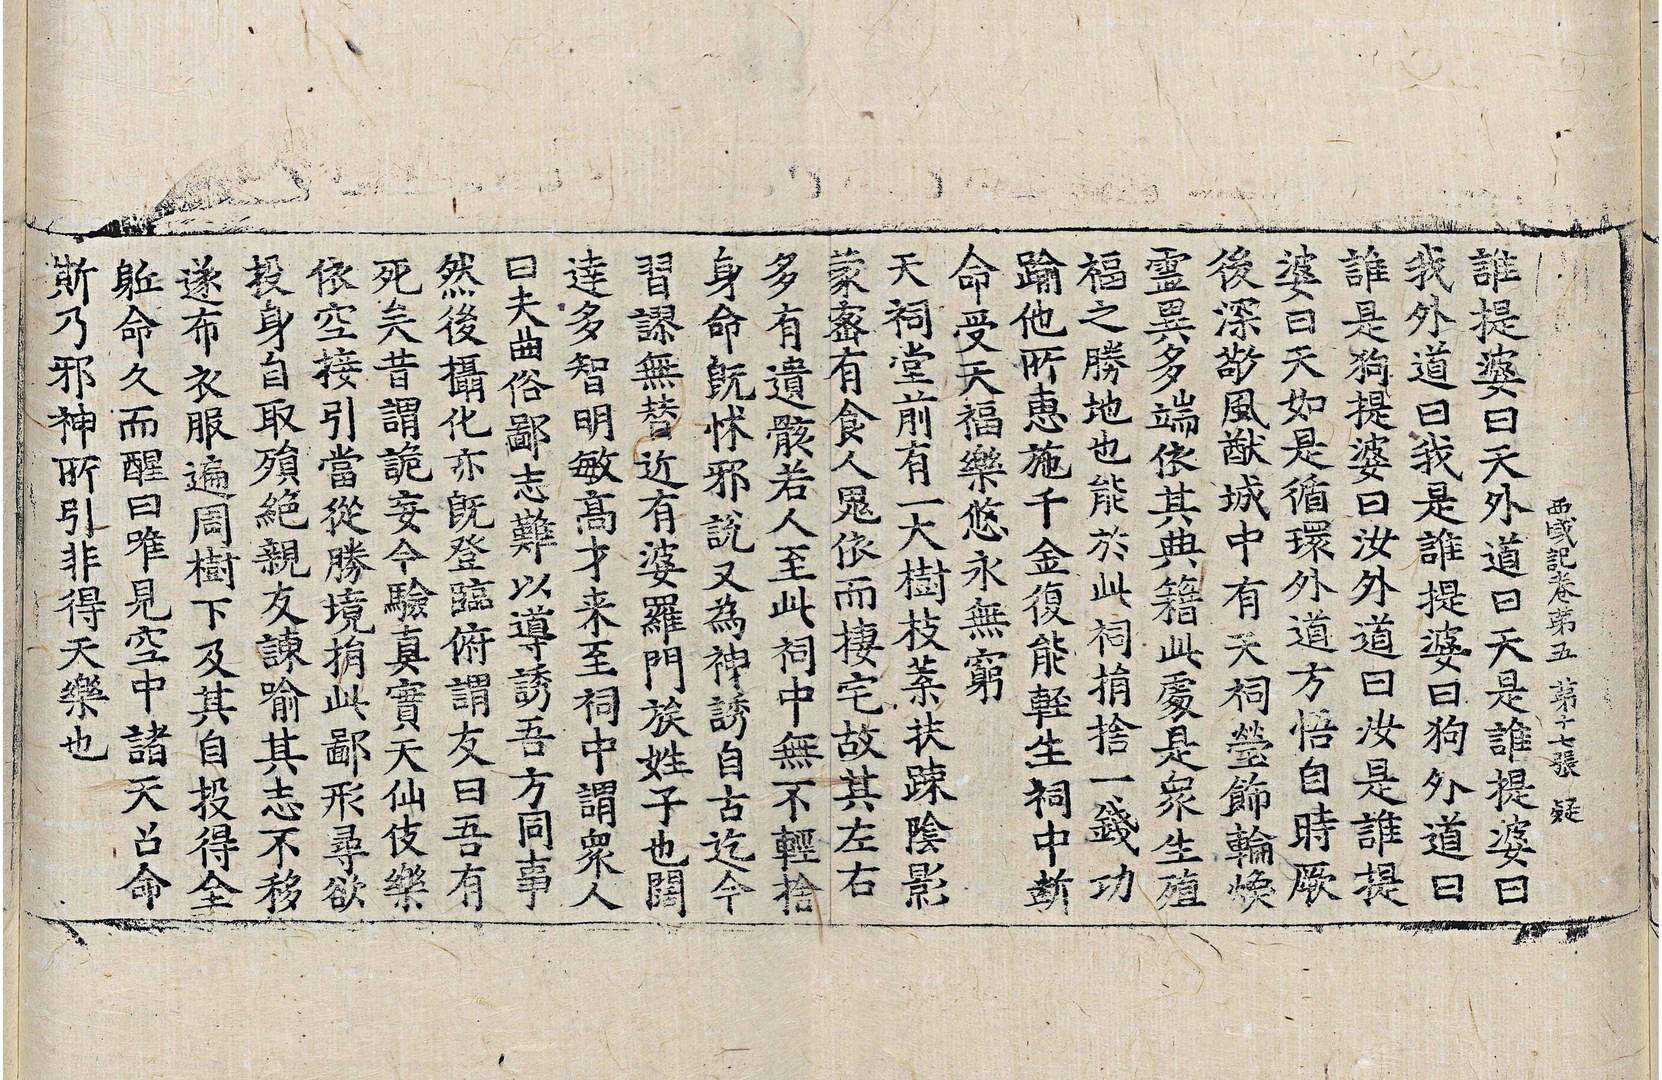 西域記卷第五 第十七張 疑
誰提婆曰天外道曰天是誰提婆曰
我外道曰我是誰提婆曰狗外道曰
誰是狗提婆曰汝外道曰汝是誰提
婆曰天如是循環外道方悟自時厥
後深敬風猷城中有天祠瑩飾輪煥
霊異多端依其典籍此處是衆生殖
福之勝地也能於此祠捐捨一錢功
踰他所惠施千金復能輕生祠中斷
命受天福樂悠永無窮
天祠堂前有一大樹枝葉扶踈陰影
蒙密有食人鬼依而棲宅故其左右
多有遺骸若人至此祠中無不輕捨
身命既怵邪說又為神誘自古迄今
習謬無替近有婆羅門族姓子也闊
達多智明敏高才来至祠中謂衆人
曰夫曲俗鄙志難以導誘吾方同事
然後攝化亦既登臨俯謂友曰吾有
死矣昔謂詭妄今驗真實天仙伎樂
依空接引當從勝境捐此鄙形尋欲
投身自取殞絕親友諫喻其志不移
遂布衣服遍周樹下及其自投得全
軀命久而醒曰唯見空中諸天召命
斯乃邪神所引非得天樂也